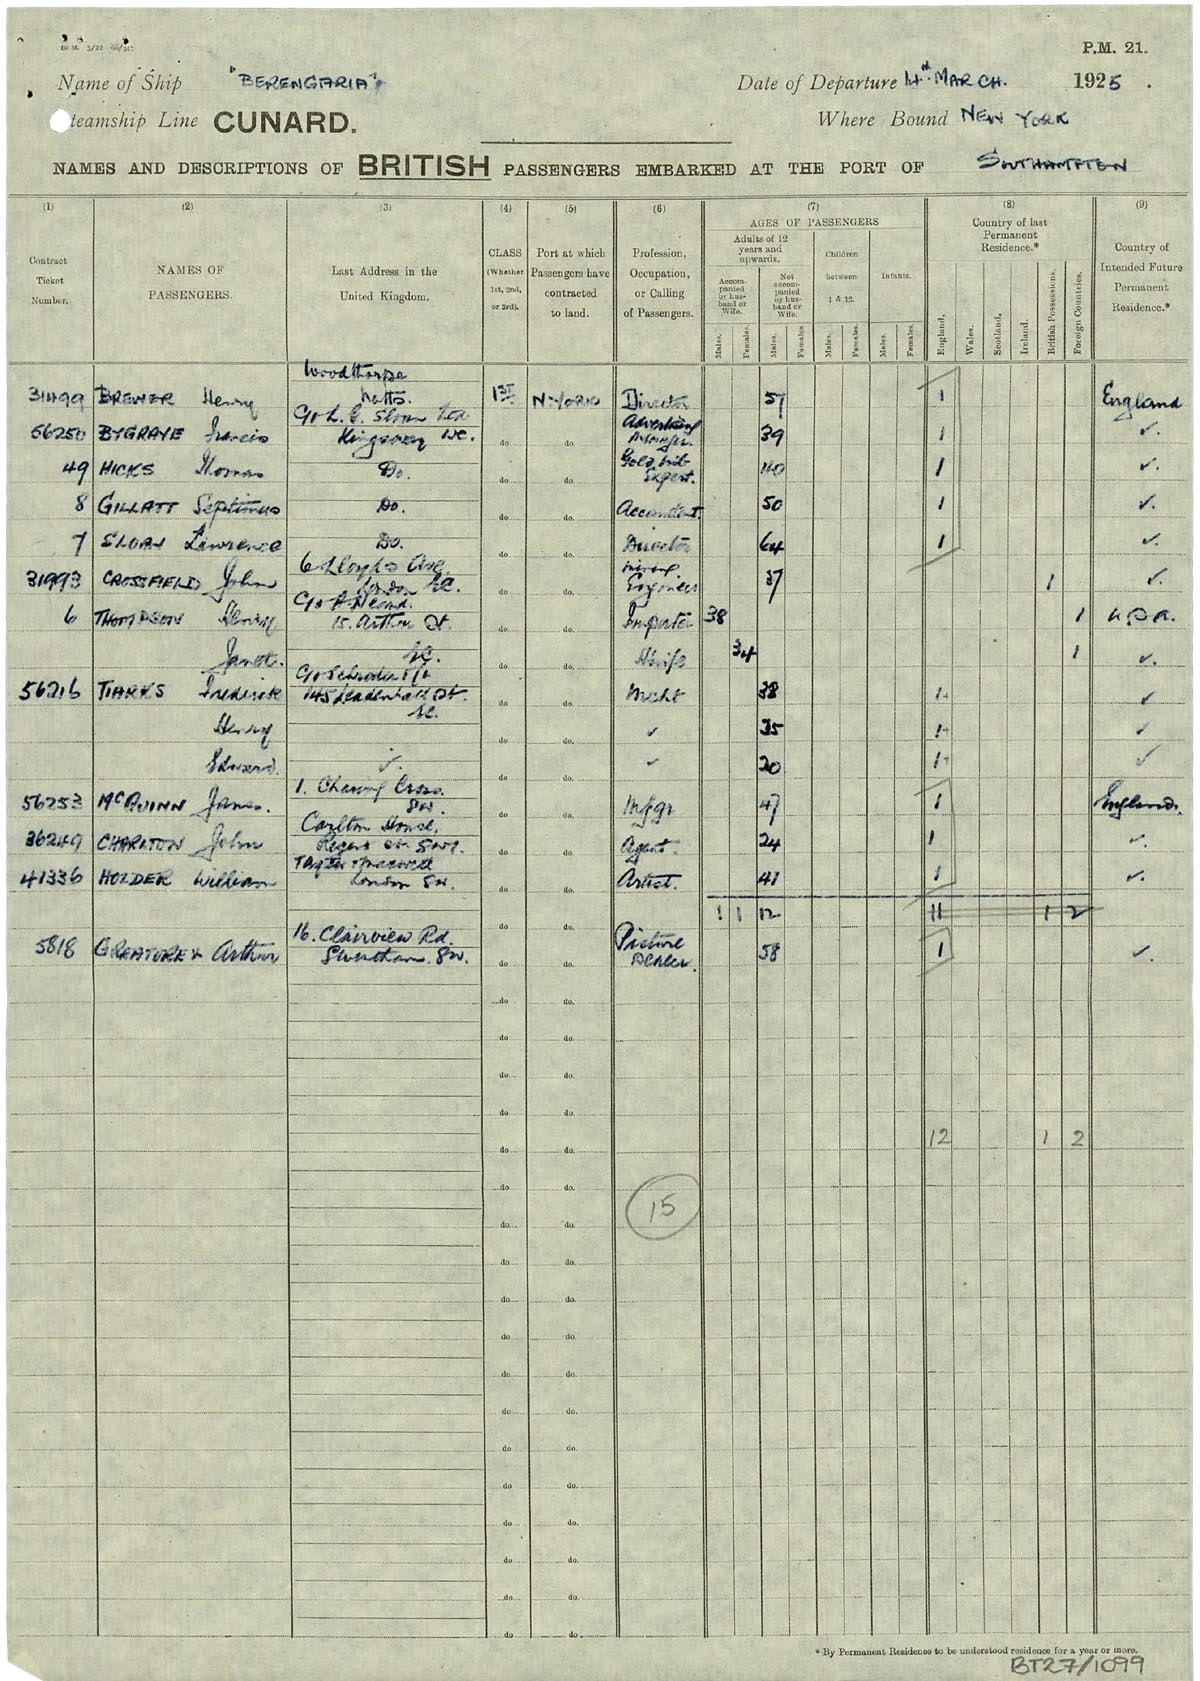 P.M. 21.
Name of Ship "BERENGARIA" Date of Departure 4th MARCH. 1925.
teamship Line CUNARD. Where Bound NEW YORK
NAMES AND DESCRIPTIONS OF BRITISH PASSENGERS EMBARKED AT THE PORT OF SOUTHAMPTON
(1) (2) (3) (4) (5) (6) (7) (8) (9)
Contract Ticket Number.
NAMES OF PASSENGERS.
Last Address in the United Kingdom.
CLASS (Whether 1st, 2nd, or 3rd).
Port at which Passengers have contracted to land.
Profession, Occupation, or Calling of Passengers.
AGES OF PASSENGERS
Adults of 12 years and upwards.
Accompanied by husband or Wife.
Not accompanied by husband or Wife.
Children between 1 & 12.
Infants.
Males. Females. Males. Females. Males. Females. Males. Females.
Country of last Permanent Residence.*
England. Wales. Scotland. Ireland. British Possessions. Foreign Countries.
Country of Intended Future Permanent Residence.*
Woodthorpe
31499 BREWER Henry Notts. 1ST N.YORK Director 57 1 England
C/o L.G. Sloan Ltd Advertising
56250 BYGRAVE Francis Kingsway W.C. do do. Manager. 39 1 ✓.
49 HICKS Thomas Do. do do. Gold nib Expert. 40 1 ✓.
8 GILLATT Septimus Do. do do. Accountant. 50 1 ✓.
7 SLOAN Lawrence Do. do do. Director 64 1 ✓.
6 Lloyds Ave. Mining
31993 CROSSFIELD John London E.C. do do. Engineer 37 1 ✓.
6 THOMPSON Henry 15. Arthur St. do do. Importer 38 1 U.S.A.
Janet. E.C. do do. Wife 34 1 ✓.
C/o Schroder
56216 TIARKS Frederick 145 Leadenhall St. do do. Mcht 38 1 ✓
E.C.
Henry do do. ✓ 35 1 ✓
Edward. ✓. do do. ✓ 20 1 ✓
1. Charing Cross.
56253 McQUINN James. SW. do do. Mfgr 47 1 England.
Carlton House.
36249 CHARLTON John Regent St. SW1. do do. Agent. 24 1 ✓.
41336 HOLDER William London SW. do do. Artist. 41 1 ✓.
1 1 12 11 1 2
16. Clairview Rd. Picture
5818 GREATOREX Arthur Streatham. SW. do do. Dealer. 58 1 ✓.
do do.
do do.
do do.
do do.
12 1 2
do do.
do do.
15
do do.
do do.
do do.
do do.
do do.
do do.
do do.
do do.
do do.
do do.
do do.
do do.
* By Permanent Residence to be understood residence for a year or more.
BT27/1099